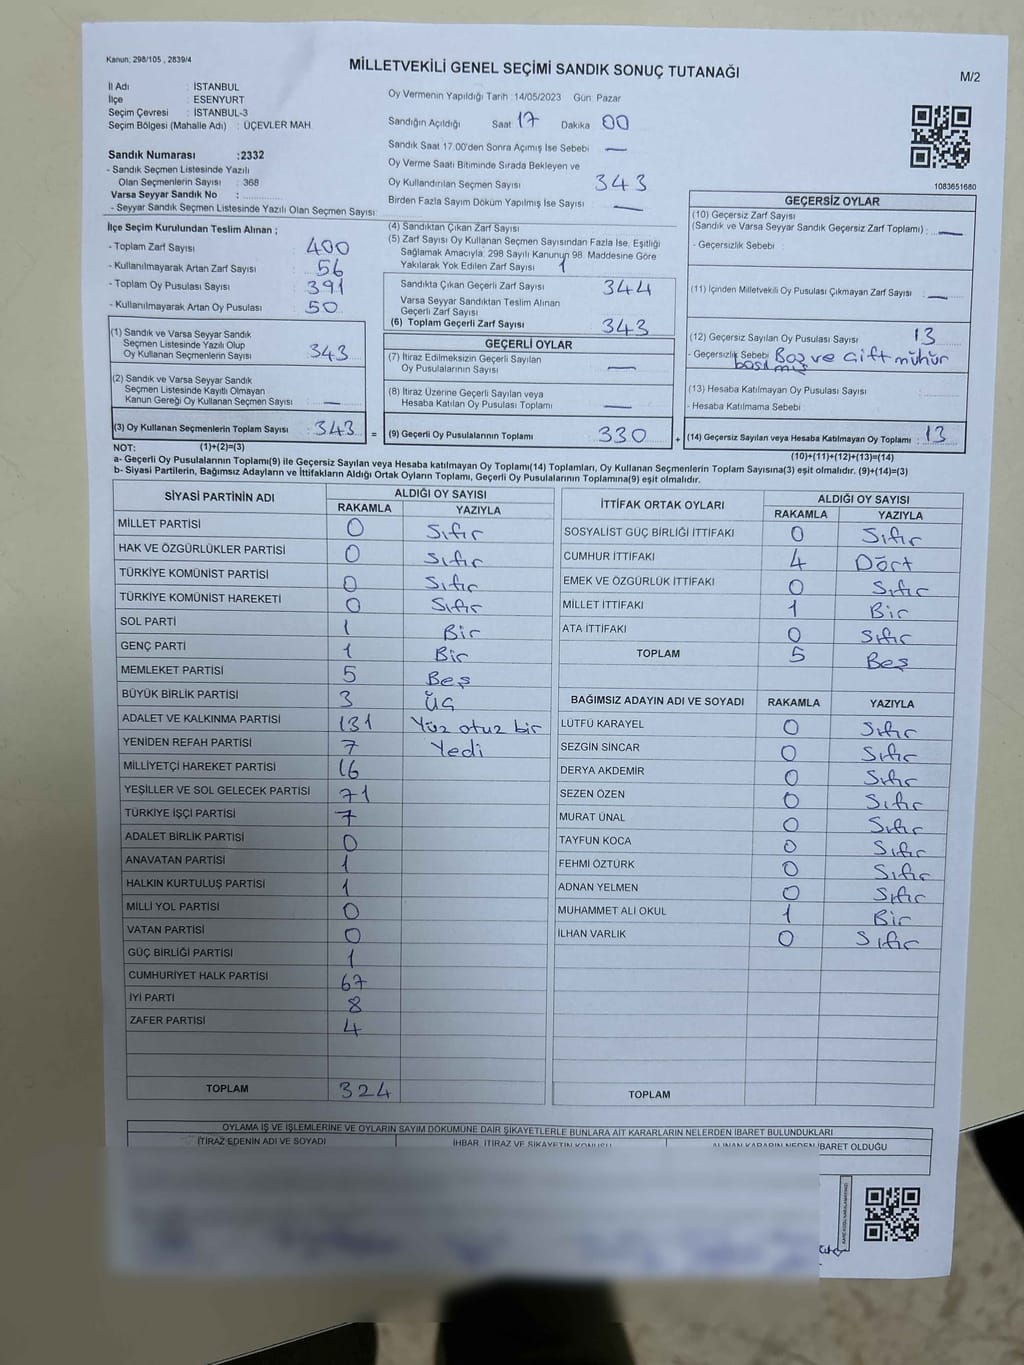 Kanun: 298/105 , 2839/4
MİLLETVEKİLİ GENEL SEÇİMİ SANDIK SONUÇ TUTANAĞI
M/2
İl Adı : İSTANBUL
İlçe : ESENYURT
Seçim Çevresi : İSTANBUL-3
Seçim Bölgesi (Mahalle Adı) : ÜÇEVLER MAH.
Sandık Numarası :2332
- Sandık Seçmen Listesinde Yazılı
Olan Seçmenlerin Sayısı : 368
Varsa Seyyar Sandık No :
- Seyyar Sandık Seçmen Listesinde Yazılı Olan Seçmen Sayısı
Oy Vermenin Yapıldığı Tarih :14/05/2023 Gün: Pazar
Sandığın Açıldığı Saat 17 Dakika 00
Sandık Saat 17.00'den Sonra Açımış İse Sebebi —
Oy Verme Saati Bitiminde Sırada Bekleyen ve
Oy Kullandırılan Seçmen Sayısı 343
Birden Fazla Sayım Döküm Yapılmış İse Sayısı —
1083651680
İlçe Seçim Kurulundan Teslim Alınan ;
- Toplam Zarf Sayısı : 400
- Kullanılmayarak Artan Zarf Sayısı : 56
- Toplam Oy Pusulası Sayısı : 391
- Kullanılmayarak Artan Oy Pusulası : 50
(1) Sandık ve Varsa Seyyar Sandık
Seçmen Listesinde Yazılı Olup
Oy Kullanan Seçmenlerin Sayısı : 343
(2) Sandık ve Varsa Seyyar Sandık
Seçmen Listesinde Kayıtlı Olmayan
Kanun Gereği Oy Kullanan Seçmen Sayısı : —
(3) Oy Kullanan Seçmenlerin Toplam Sayısı : 343 =
(1)+(2)=(3)
(4) Sandıktan Çıkan Zarf Sayısı
(5) Zarf Sayısı Oy Kullanan Seçmen Sayısından Fazla İse, Eşitliği
Sağlamak Amacıyla; 298 Sayılı Kanunun 98. Maddesine Göre
Yakılarak Yok Edilen Zarf Sayısı 1
Sandıkta Çıkan Geçerli Zarf Sayısı 344
Varsa Seyyar Sandıktan Teslim Alınan
Geçerli Zarf Sayısı
(6) Toplam Geçerli Zarf Sayısı 343
GEÇERLİ OYLAR
(7) İtiraz Edilmeksizin Geçerli Sayılan
Oy Pusulalarının Sayısı —
(8) İtiraz Üzerine Geçerli Sayılan veya
Hesaba Katılan Oy Pusulası Toplamı —
(9) Geçerli Oy Pusulalarının Toplamı 330 +
GEÇERSİZ OYLAR
(10) Geçersiz Zarf Sayısı
(Sandık ve Varsa Seyyar Sandık Geçersiz Zarf Toplamı) : —
- Geçersizlik Sebebi :
(11) İçinden Milletvekili Oy Pusulası Çıkmayan Zarf Sayısı : —
(12) Geçersiz Sayılan Oy Pusulası Sayısı : 13
- Geçersizlik Sebebi Boş ve çift mühür
basılmış
(13) Hesaba Katılmayan Oy Pusulası Sayısı :
- Hesaba Katılmama Sebebi :
(14) Geçersiz Sayılan veya Hesaba Katılmayan Oy Toplamı : 13
(10)+(11)+(12)+(13)=(14)
NOT:
a- Geçerli Oy Pusulalarının Toplamı(9) ile Geçersiz Sayılan veya Hesaba katılmayan Oy Toplamı(14) Toplamları, Oy Kullanan Seçmenlerin Toplam Sayısına(3) eşit olmalıdır. (9)+(14)=(3)
b- Siyasi Partilerin, Bağımsız Adayların ve İttifakların Aldığı Ortak Oyların Toplamı, Geçerli Oy Pusulalarının Toplamına(9) eşit olmalıdır.
SİYASİ PARTİNİN ADI ALDIĞI OY SAYISI
RAKAMLA YAZIYLA
MİLLET PARTİSİ 0 Sıfır
HAK VE ÖZGÜRLÜKLER PARTİSİ 0 Sıfır
TÜRKİYE KOMÜNİST PARTİSİ 0 Sıfır
TÜRKİYE KOMÜNİST HAREKETİ 0 Sıfır
SOL PARTİ 1 Bir
GENÇ PARTİ 1 Bir
MEMLEKET PARTİSİ 5 Beş
BÜYÜK BİRLİK PARTİSİ 3 Üç
ADALET VE KALKINMA PARTİSİ 131 Yüz otuz bir
YENİDEN REFAH PARTİSİ 7 Yedi
MİLLİYETÇİ HAREKET PARTİSİ 16
YEŞİLLER VE SOL GELECEK PARTİSİ 71
TÜRKİYE İŞÇİ PARTİSİ 7
ADALET BİRLİK PARTİSİ 0
ANAVATAN PARTİSİ 1
HALKIN KURTULUŞ PARTİSİ 1
MİLLİ YOL PARTİSİ 0
VATAN PARTİSİ 0
GÜÇ BİRLİĞİ PARTİSİ 1
CUMHURİYET HALK PARTİSİ 67
İYİ PARTİ 8
ZAFER PARTİSİ 4
TOPLAM 324
İTTİFAK ORTAK OYLARI ALDIĞI OY SAYISI
RAKAMLA YAZIYLA
SOSYALİST GÜÇ BİRLİĞİ İTTİFAKI 0 Sıfır
CUMHUR İTTİFAKI 4 Dört
EMEK VE ÖZGÜRLÜK İTTİFAKI 0 Sıfır
MİLLET İTTİFAKI 1 Bir
ATA İTTİFAKI 0 Sıfır
TOPLAM 5 Beş
BAĞIMSIZ ADAYIN ADI VE SOYADI RAKAMLA YAZIYLA
LÜTFÜ KARAYEL 0 Sıfır
SEZGİN SİNCAR 0 Sıfır
DERYA AKDEMİR 0 Sıfır
SEZEN ÖZEN 0 Sıfır
MURAT ÜNAL 0 Sıfır
TAYFUN KOCA 0 Sıfır
FEHMİ ÖZTÜRK 0 Sıfır
ADNAN YELMEN 0 Sıfır
MUHAMMET ALİ OKUL 1 Bir
İLHAN VARLIK 0 Sıfır
TOPLAM
OYLAMA İŞ VE İŞLEMLERİNE VE OYLARIN SAYIM DÖKÜMÜNE DAİR ŞİKAYETLERLE BUNLARA AİT KARARLARIN NELERDEN İBARET BULUNDUKLARI
İTİRAZ EDENİN ADI VE SOYADI İHBAR, İTİRAZ VE ŞİKAYETİN KONUSU ALINAN KARARIN NEDEN İBARET OLDUĞU